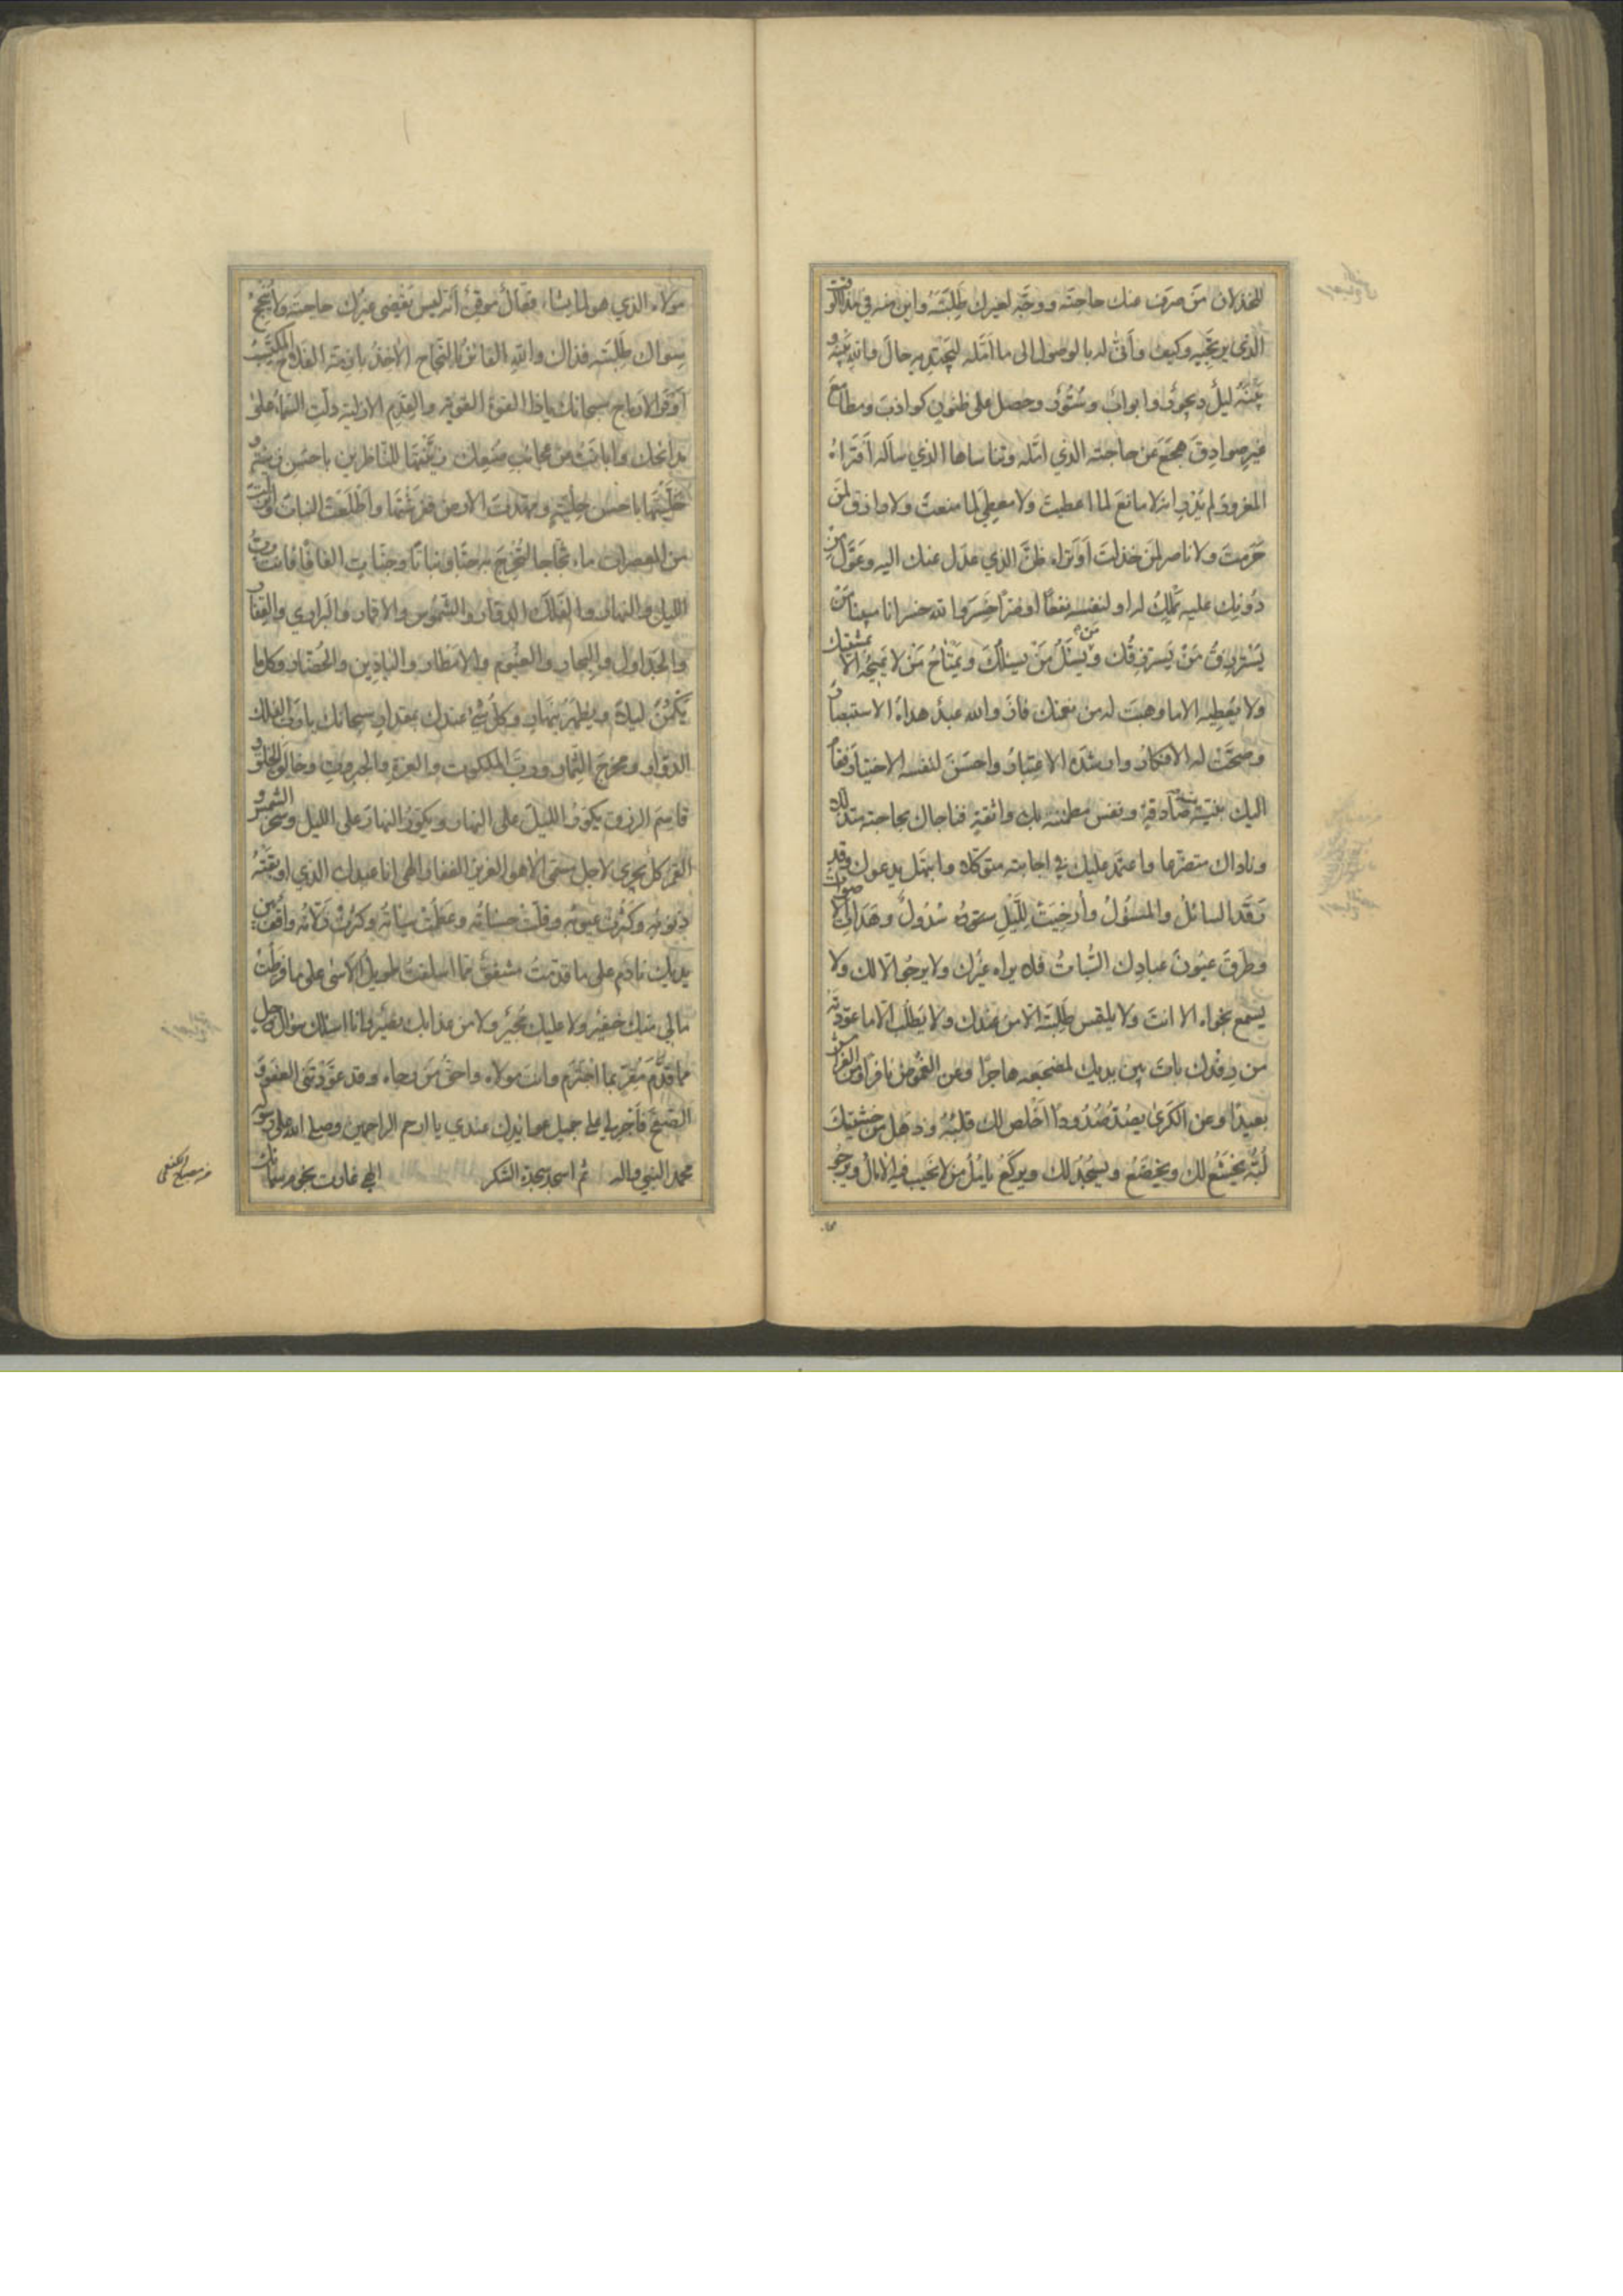 الخذلان من صرف عنك حاجته ووجه لغيرك طلبته واين منه في هذا الوقت
الذي يرتجيه وكيف وأنى له بالوصول الى ما امله ليجتدي به حال والله بينه و
بينه ليل ديجور وابواب وستور وحصل على ظنون كواذب ومطامع
غير صوادق هجع عن حاجته الذي امله وتناساها الذي ساله أفتراه
المغرور لم يدر انه لا مانع لما اعطيت ولا معطي لما منعت ولا رازق لمن
حرمت ولا ناصر لمن خذلت أو تراه ظن الذي عدل عنك اليه وعول من
دونك عليه تملك له او لنفسه نفعا او ضرا خسر والله خسرانا مبينا من
يسترزق من يسترزقك ويسئل من يسئلك ويمتاح من لا يميحه الا بمشيتك
ولا يعطيه الا ما وهبت له من نعمتك فاز والله عبد هداه الاستبصار
وصحت له الافكار وارشده الاعتبار واحسن لنفسه الاختيار فقام
اليك بنية صادقة ونفس مطمئنة بك واثقة فناجاك بحاجته متذللا
وناداك متضرعا واعتمد عليك في اجابته متوكلا وابتهل يدعوك وقد
رقد السائل والمسؤل وأرخيت لليل ستور سدول وهدات الاصوات
وطرق عيون عبادك السبات فلا يراه غيرك ولا يرجو الا لك ولا
يسمع نجواه الا انت ولا يلتمس طلبته الا من عندك ولا يطلب الا ما عودته
من رفدك بات بين يديك لمضجعه هاجرا وعن الغموض نافرا ومن الفراش
بعيدا وعن الكرى يصد صدودا اخلص لك قلبه وذهل من خشيتك
لبه يخشع لك ويخضع ويسجد لك ويركع يامل من لا تخيب فيه الامال ويرجو
مولاه الذي هو لما يشاء فعال موقن أنه ليس يقضي غيرك حاجته ولا ينجح
سواك طلبته فذاك والله الفائز بالنجاح الآخذ بازمة الفلاح المكتسب
أوفر الارباح سبحانك ياذا القوة القوية والقدم الازلية دلت السماء على
بدائعك وابانت عن عجائب صنعك زينتها للناظرين باحسن زينة و
حليتها باحسن حلية ومهدت الارض ففرشتها وأطلعت النبات وانزلت
من المعصرات ماء ثجاجا لتخرج به حبا ونباتا وجنات الفافا فانت رب
الليل والنهار والفلك الدوار والشموس والاقمار والبراري والقفار
والجداول والبحار والغيوم والامطار والبادين والحضار وكل ما
يكمن ليلا ويظهر بنهار وكل شئ عندك بمقدار سبحانك يا رب الفلك
الدوار ومخرج الثمار ورب الملكوت والعزة والجبروت وخالق الخلق و
قاسم الرزق يكور الليل على النهار ويكور النهار على الليل وسخر الشمس و
القمر كل يجري لاجل مسمى الا هو العزيز الغفار الهي انا عبدك الذي اوبقته
ذنوبه وكثرت عيوبه وقلت حسناته وعظمت سيئاته وكثرت زلاته واقف بين
يديك نادم على ما قدمت مشفق مما اسلفت طويل الاسى على ما فرطت
مالي منك خفير ولا عليك مجير ولا من عذابك نصير وانا اسئلك سؤال وجل
مما قدم مقر بما اجترم وانت مولاه واحق من رجاه وقد عودتني العفو و
الصفح فاجرني على جميل عوائدك عندي يا ارحم الراحمين وصلى الله على رسوله
محمد النبي واله ثم اسجد سجدة الشكر الهي غارت نجوم سمائك